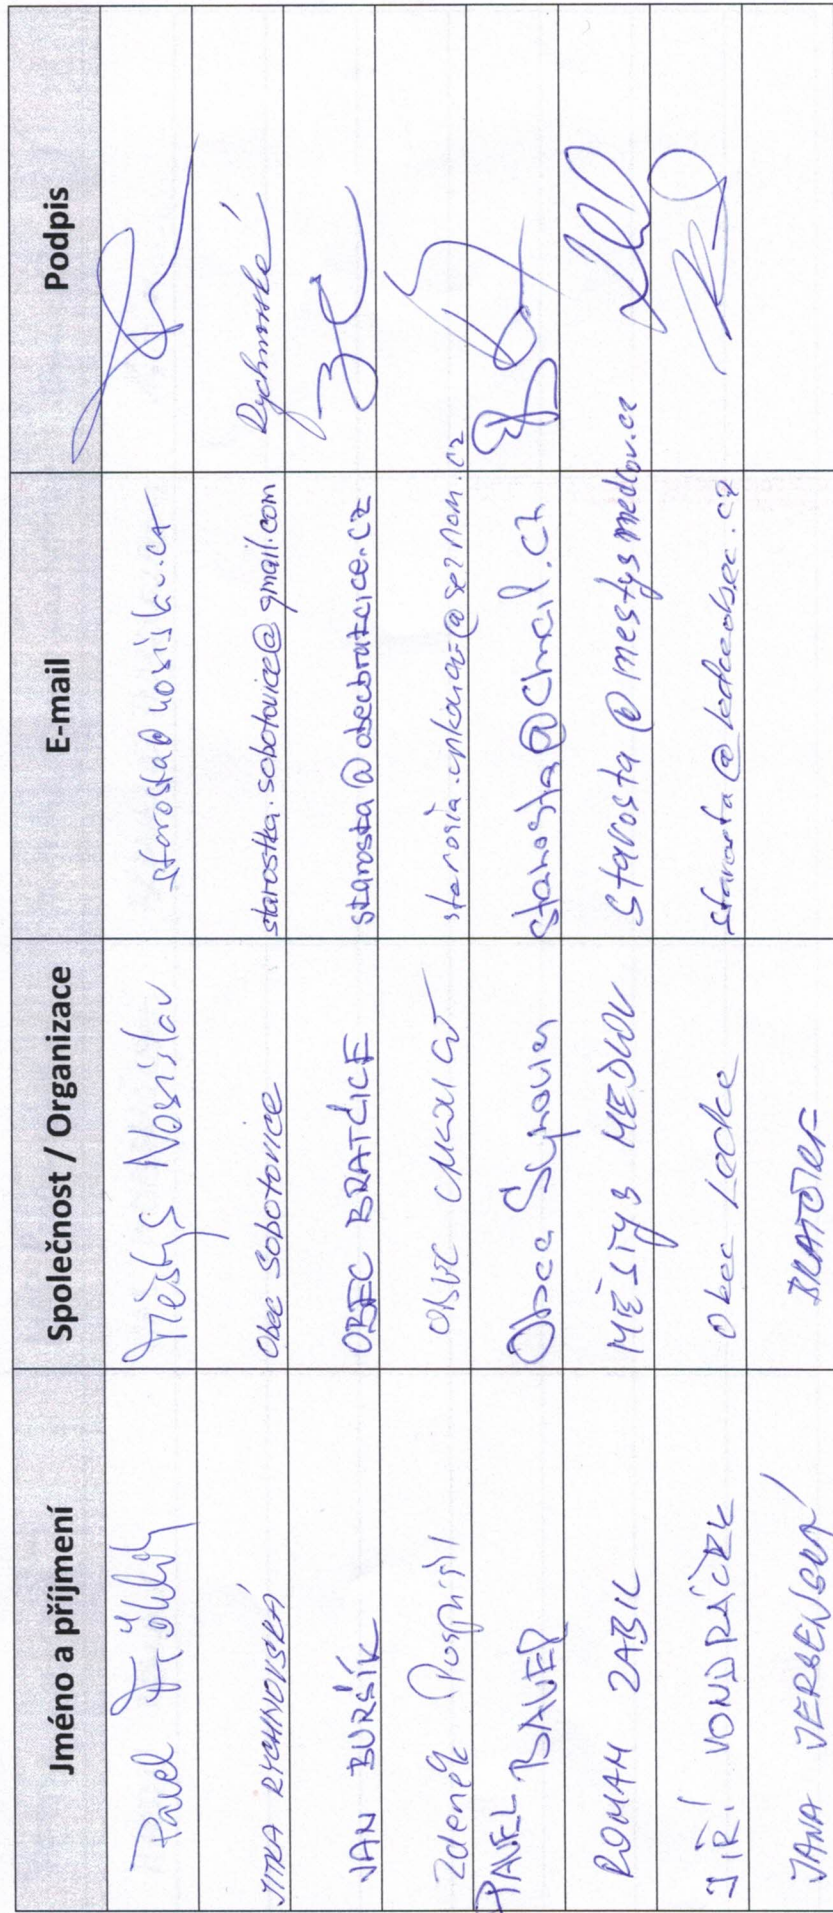 Jméno a příjmení Společnost / Organizace E-mail Podpis
Pavel Městys Nosislav starosta@nosislav.cz
JITKA RYCHNOVSKÁ Obec Sobotovice starostka.sobotovice@gmail.com Rychnovská
JAN BURŠÍK OBEC BRATČICE starosta@obecbratcice.cz
Zdeněk Pospíšil OBEC
PAVEL BAUER Obec Syrovice
ROMAN ZABIL MĚSTYS MEDLOV starosta@mestysmedlov.cz
JIŘÍ VONDRÁČEK Obec Ledce starosta@ledceobec.cz
JANA BRATČICE